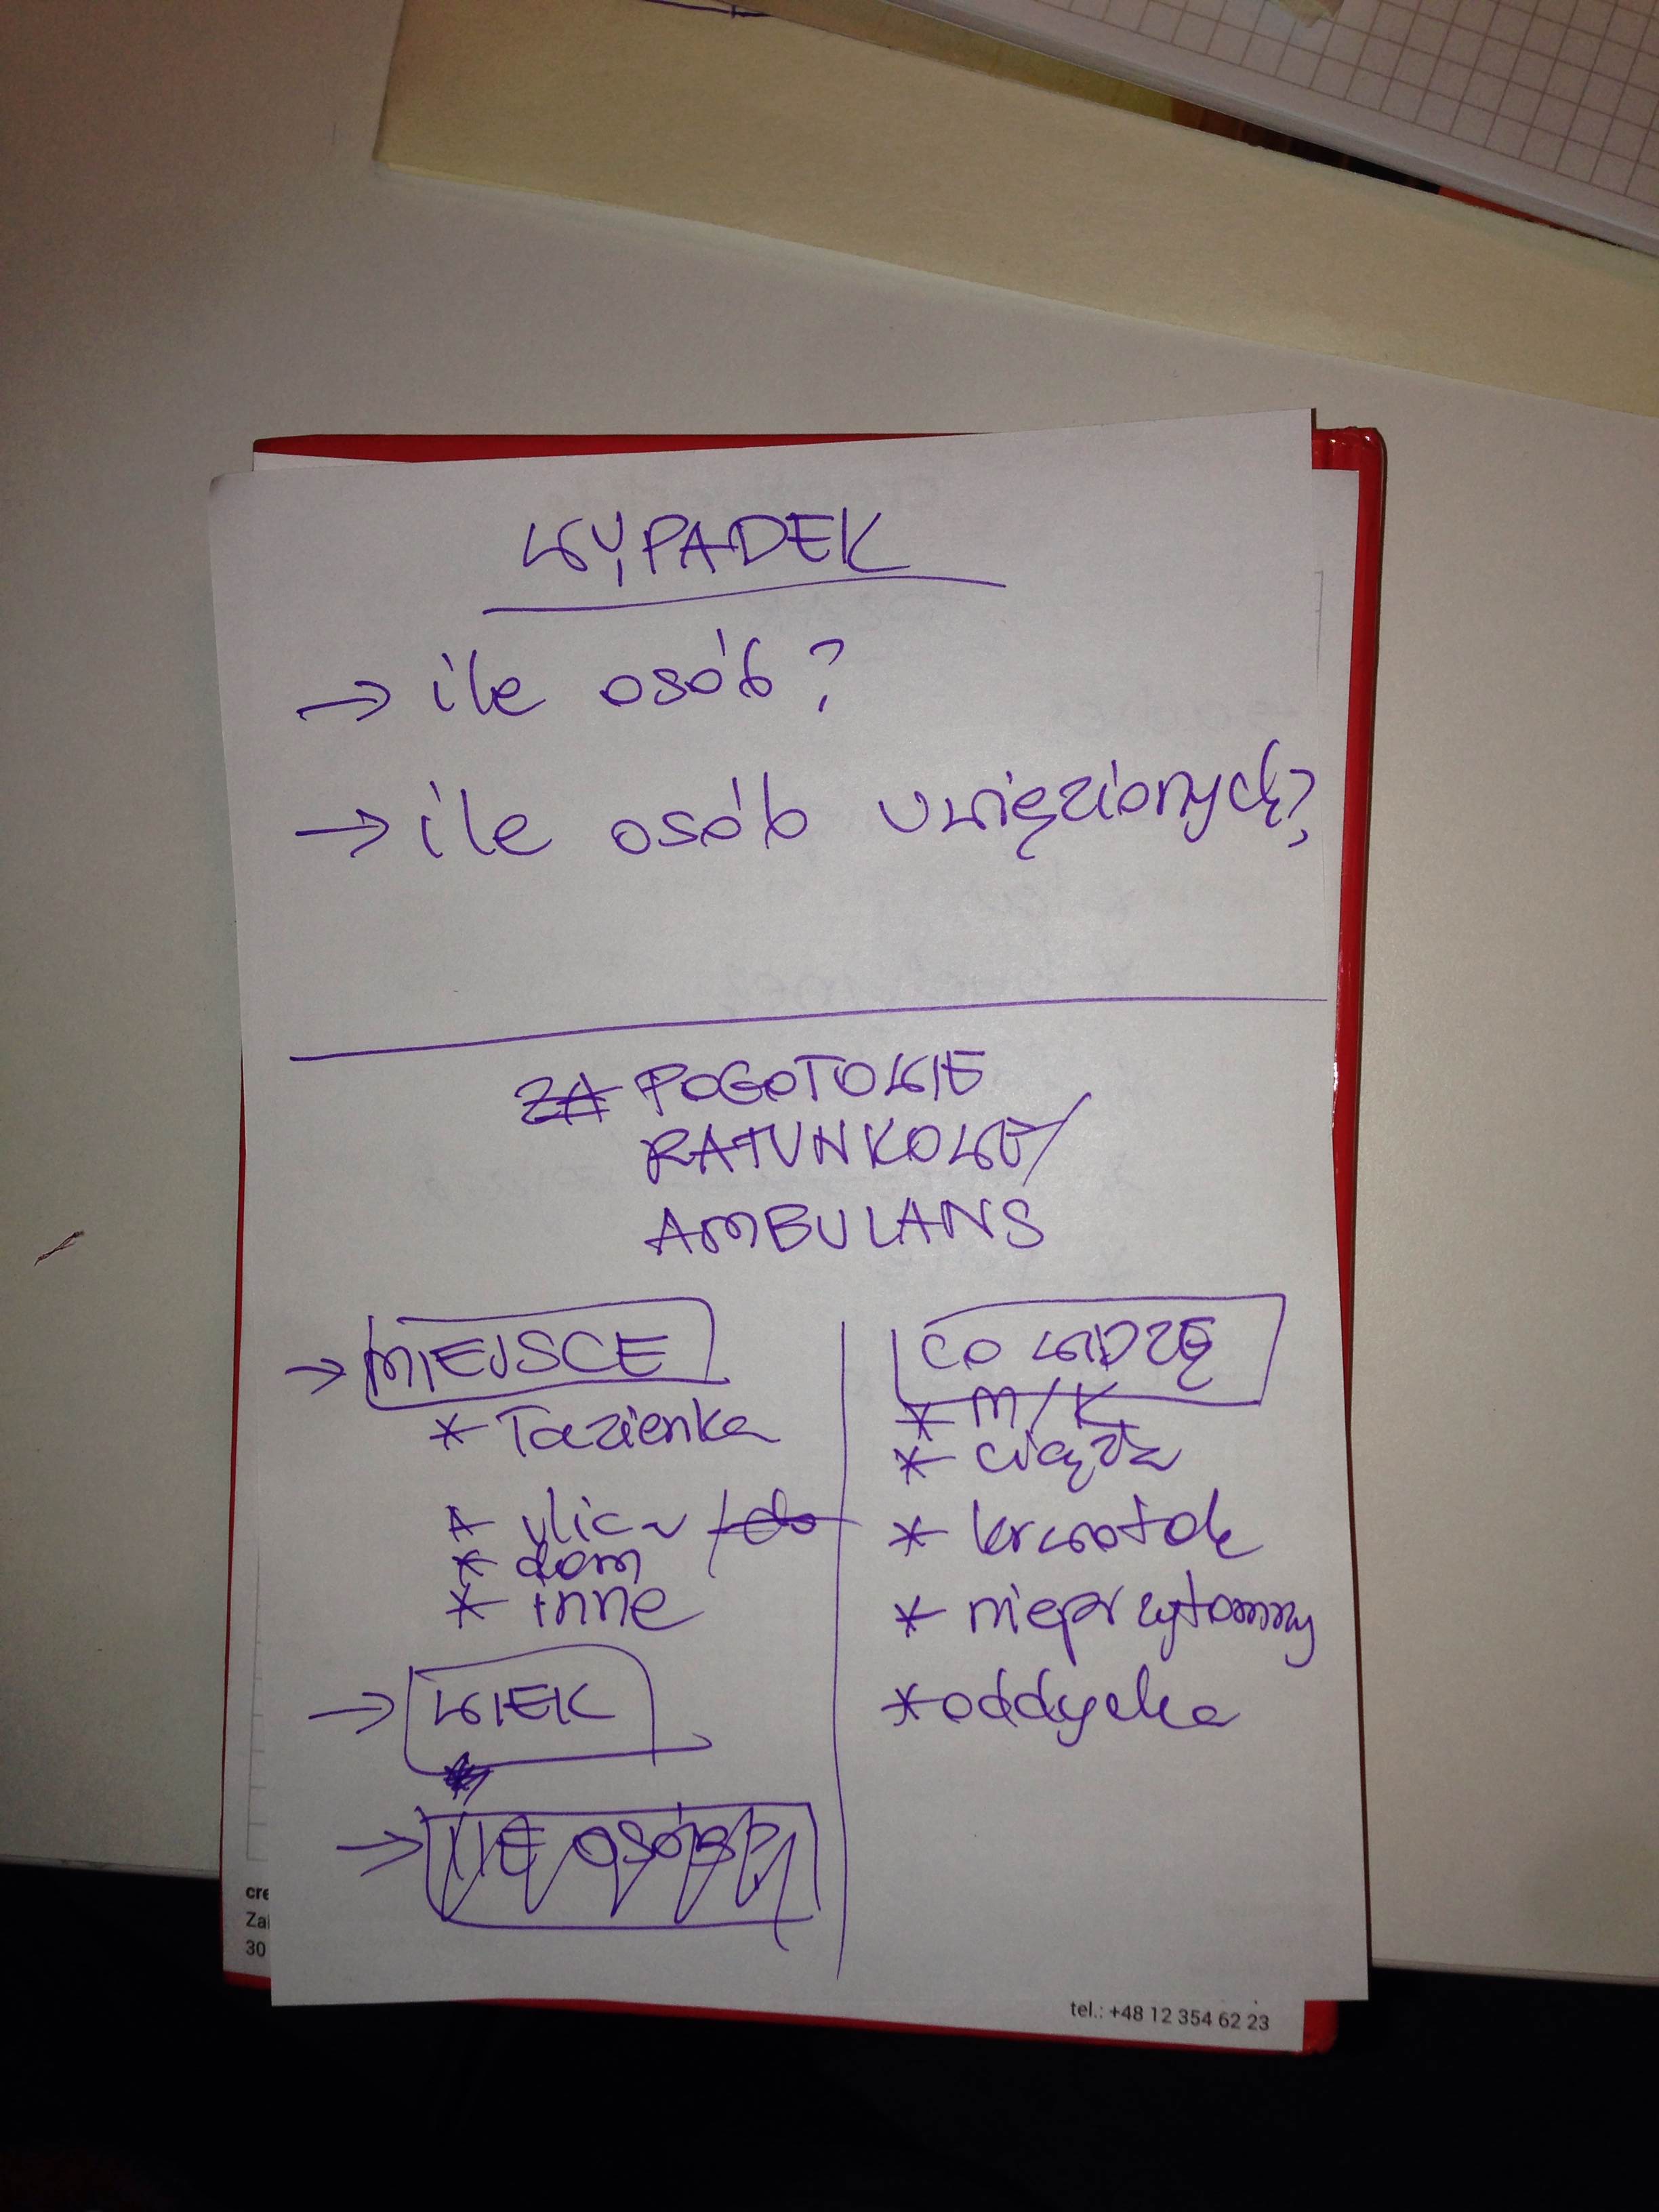 WYPADEK
→ ile osób?
→ ile osób uwięzionych?
ZA POGOTOWIE
RATUNKOWE/
AMBULANS
→ MIEJSCE
* Łazienka
* ulica / do
* dom
* inne
→ WIEK
→ ILE OSÓB?
CO WIDZĘ
* M/K
* ciąża
* krwotok
* nieprzytomny
* oddycha
cre
Zai
30
tel.: +48 12 354 62 23